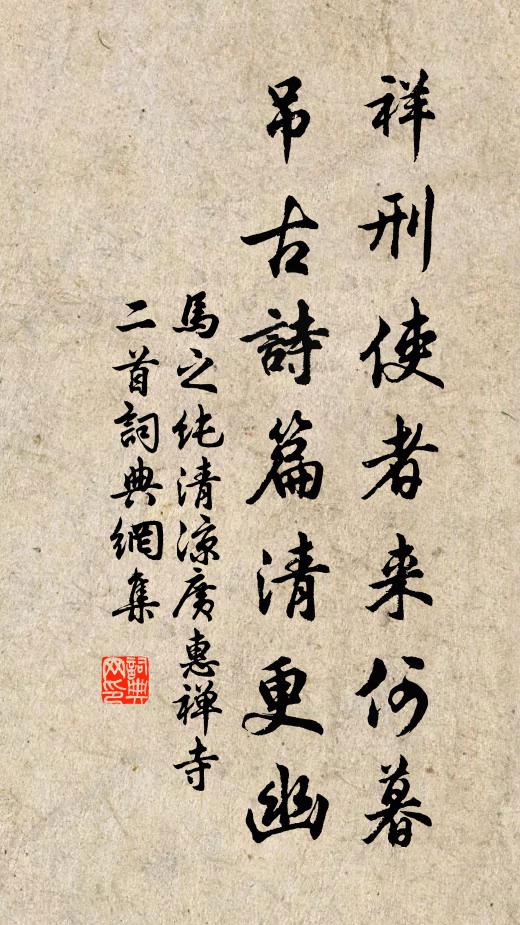 祥刑使者来何暮
吊古詩篇清更幽
馬之純清涼廣惠禅寺
二首詞典網集
詞典网印